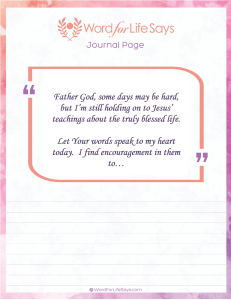 Word for Life Says
Journal Page
“
Father God, some days may be hard,
but I'm still holding on to Jesus'
teachings about the truly blessed life.
Let Your words speak to my heart
today. I find encouragement in them
to…
”
WordforLifeSays.com